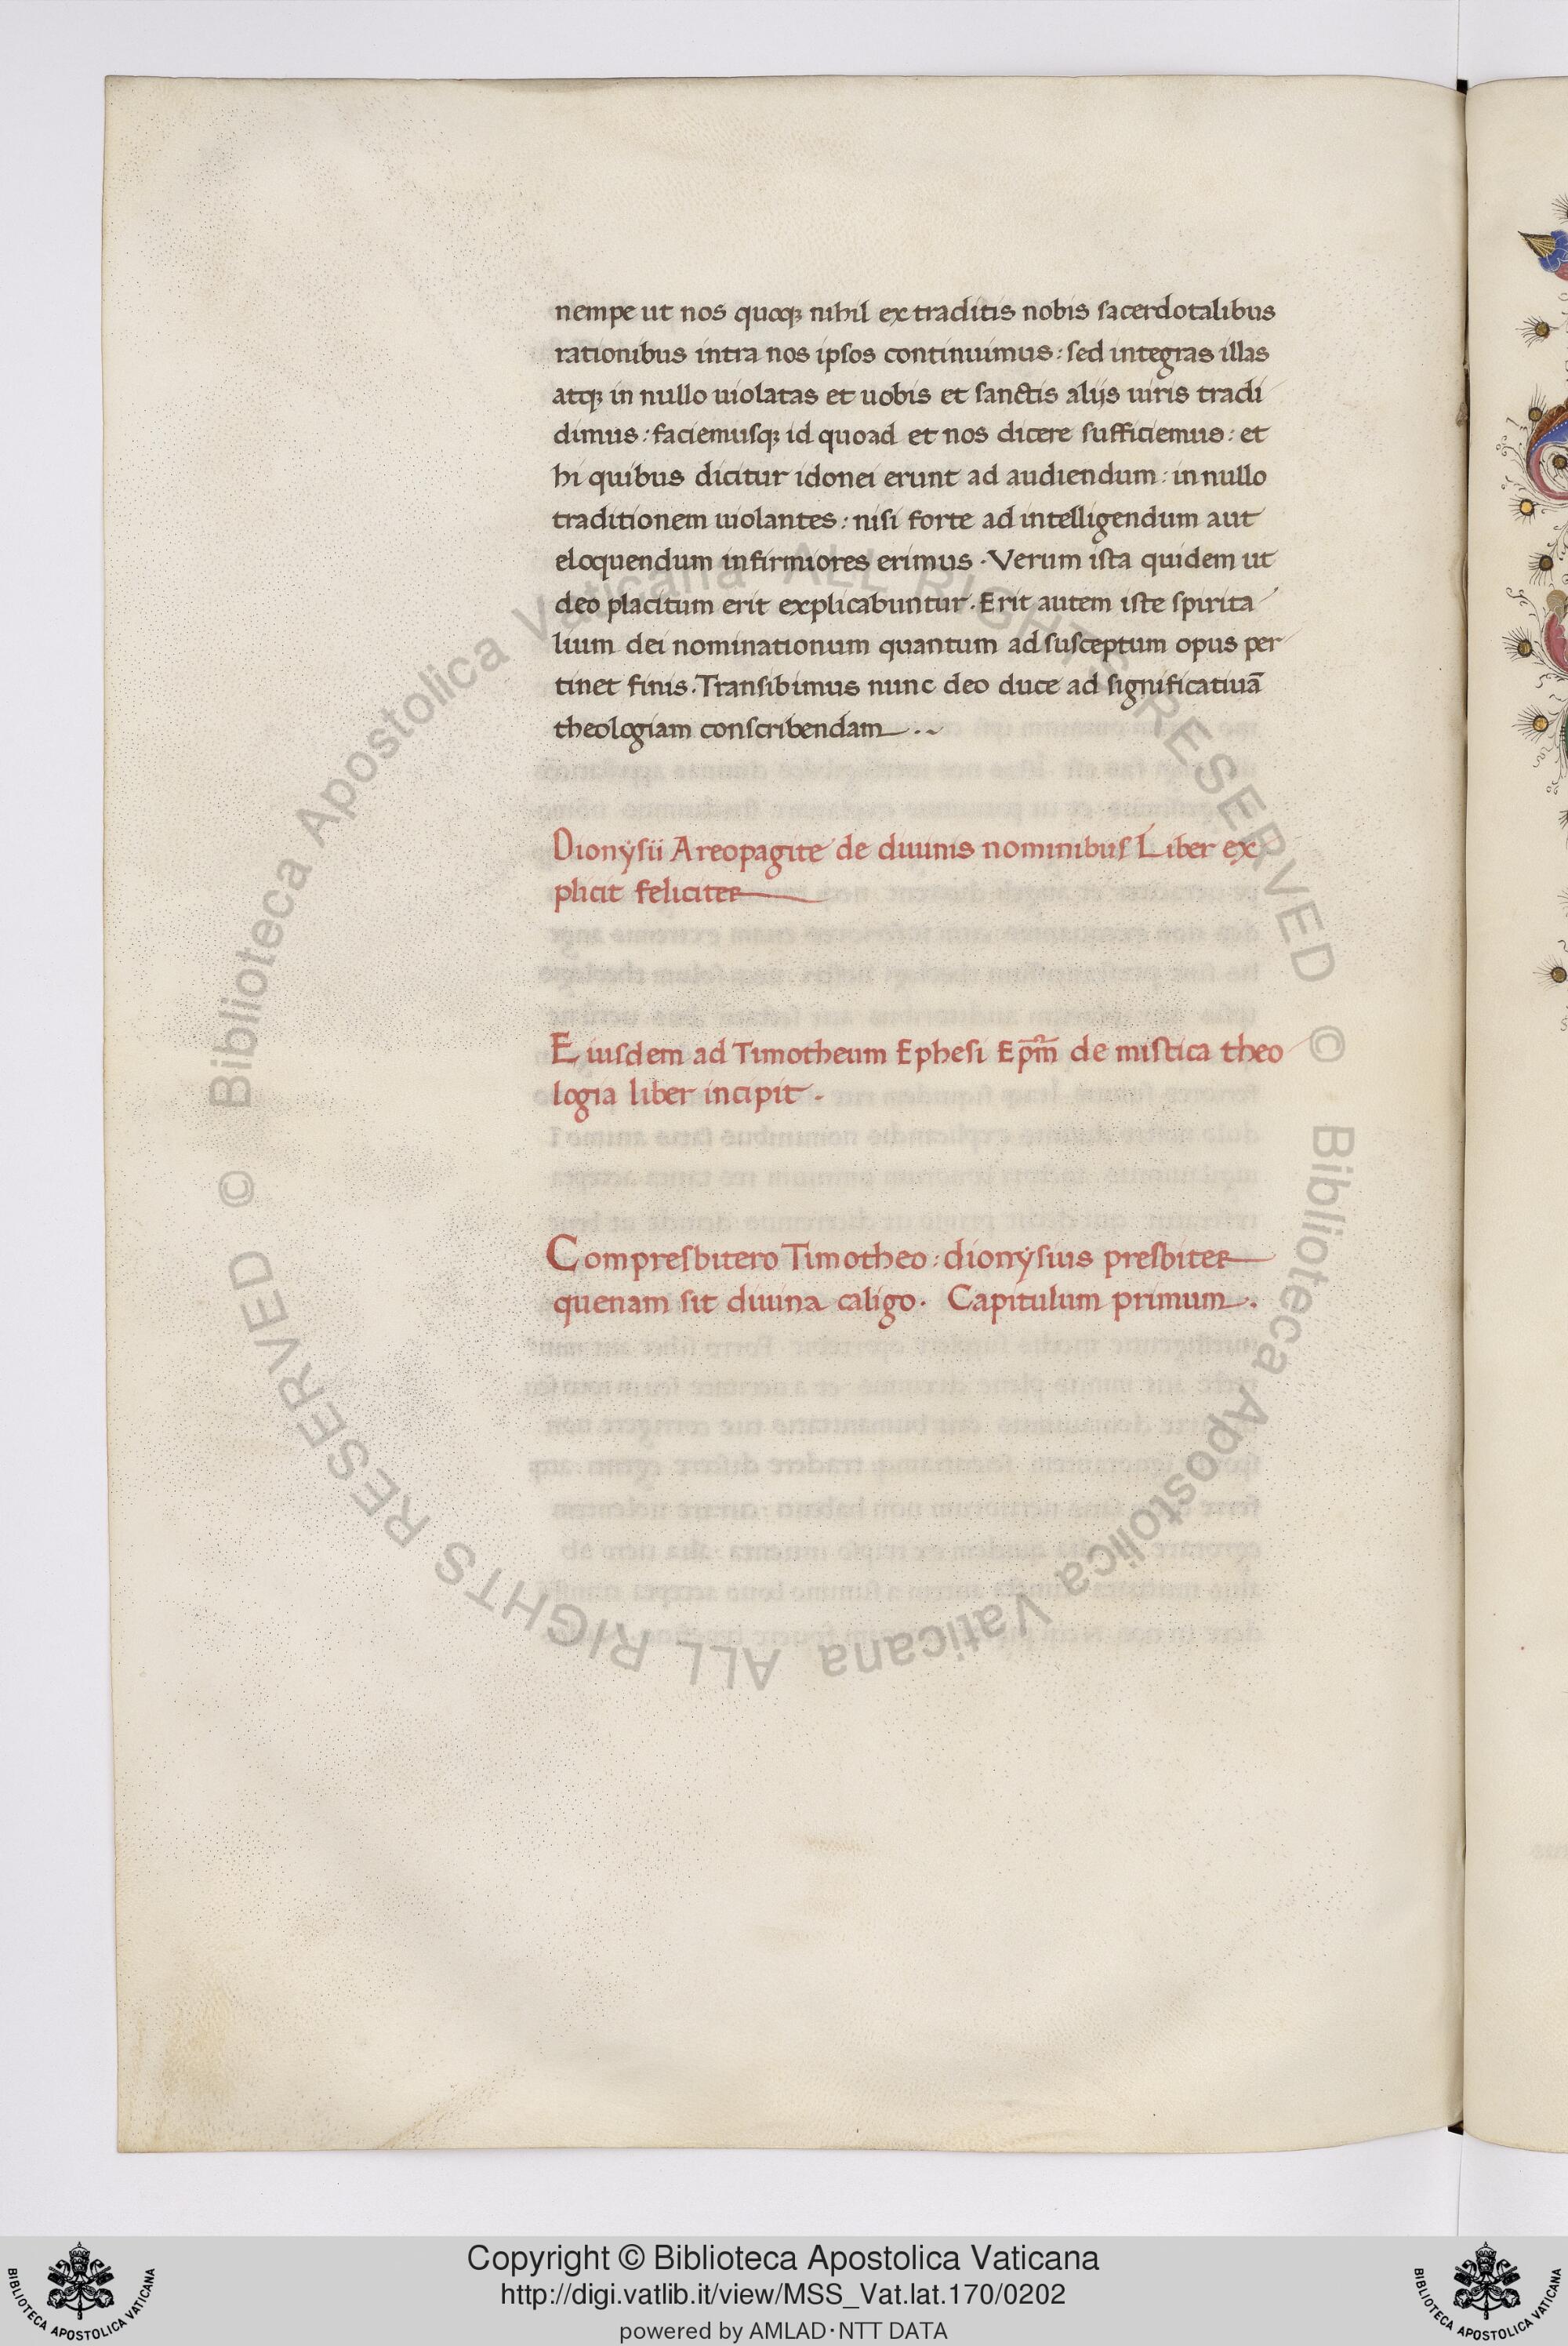 nempe ut nos quoqꝫ nihil ex traditis nobis sacerdotalibus
rationibus intra nos ipsos continuimus: sed integras illas
atqꝫ in nullo uiolatas et uobis et sanctis alijs uiris tradi
dimus: faciemusqꝫ id quoad et nos dicere sufficiemus: et
hi quibus dicitur idonei erunt ad audiendum: in nullo
traditionem uiolantes: nisi forte ad intelligendum aut
eloquendum infirmiores erimus. Verum ista quidem ut
deo placitum erit explicabuntur. Erit autem iste spirita
lium dei nominationum quantum ad susceptum opus per
tinet finis. Transibimus nunc deo duce ad significatiuā
theologiam conscribendam.~
Dionẏsii Areopagite de diuinis nominibus Liber ex
plicit feliciter
Eiusdem ad Timotheum Ephesi Ep̄m̄ de mistica theo
logia liber incipit.
Compresbitero Timotheo: dionẏsius presbiter
quenam sit diuina caligo. Capitulum primum.
© Biblioteca Apostolica Vaticana ALL RIGHTS RESERVED
© Biblioteca Apostolica Vaticana ALL RIGHTS RESERVED
Copyright © Biblioteca Apostolica Vaticana
http://digi.vatlib.it/view/MSS_Vat.lat.170/0202
powered by AMLAD·NTT DATA
BIBLIOTECA APOSTOLICA VATICANA
BIBLIOTECA APOSTOLICA VATICANA